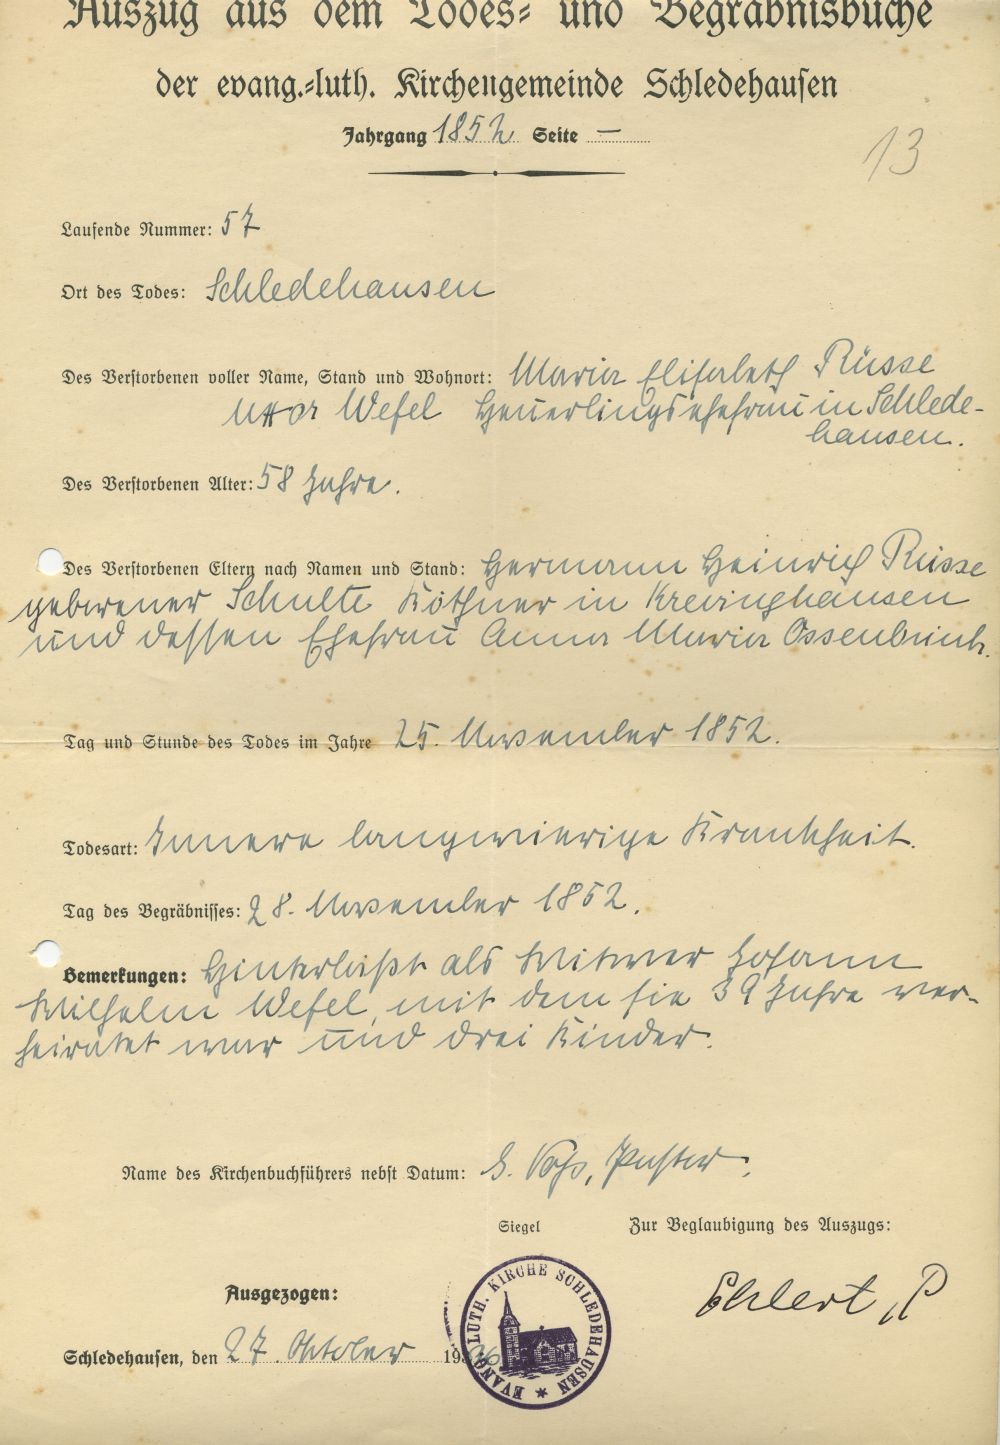 Auszug aus dem Todes- und Begräbnisbuche
der evang.-luth. Kirchengemeinde Schledehausen
Jahrgang 1852 Seite —
13
Laufende Nummer: 57
Ort des Todes: Schledehausen
Des Verstorbenen voller Name, Stand und Wohnort: Maria Elisabeth Rüsse
Wefel Heuerlingsehefrau in Schlede-
hausen.
Des Verstorbenen Alter: 58 Jahre.
Des Verstorbenen Eltern nach Namen und Stand: Hermann Heinrich Rüsse
geborener Schulte Köthner in Krevinghausen
und dessen Ehefrau Anna Maria Ossenbrink.
Tag und Stunde des Todes im Jahre 25. November 1852.
Todesart: Innere langwierige Krankheit.
Tag des Begräbnisses: 28. November 1852.
Bemerkungen: Hinterläßt als Witwer Johann
Wilhelm Wefel, mit dem sie 39 Jahre ver-
heiratet war und drei Kinder.
Name des Kirchenbuchführers nebst Datum: Pastor.
Siegel Zur Beglaubigung des Auszugs:
Ausgezogen:
Ehlert, P
Schledehausen, den 27. Oktober 19
EVANG. LUTH. KIRCHE SCHLEDEHAUSEN